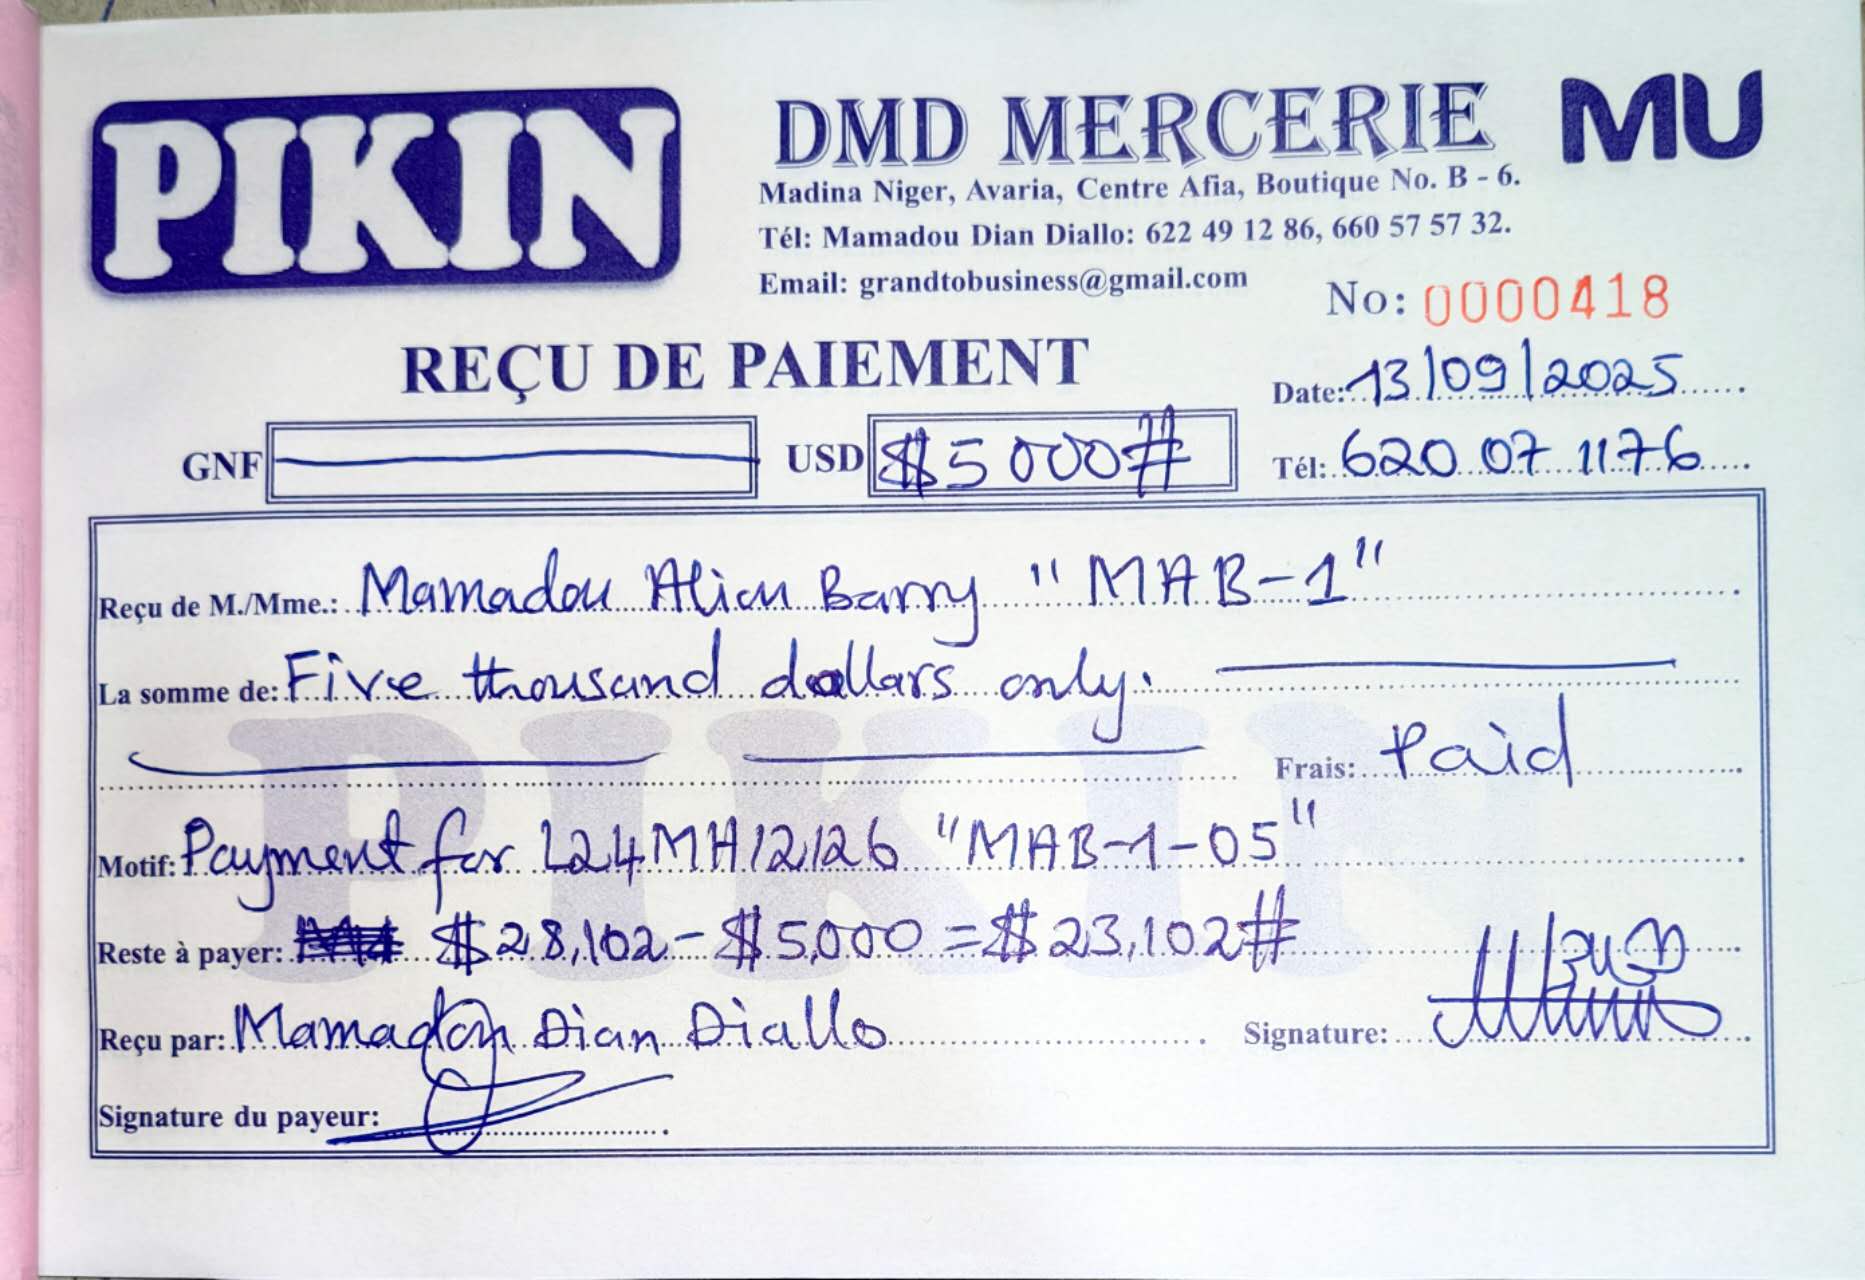 PIKIN
DMD MERCERIE MU
Madina Niger, Avaria, Centre Afia, Boutique No. B - 6.
Tél: Mamadou Dian Diallo: 622 49 12 86, 660 57 57 32.
Email: grandtobusiness@gmail.com
No: 0000418
REÇU DE PAIEMENT
Date: 13/09/2025
GNF USD $5 000#
Tél: 620 07 1176
Reçu de M./Mme.: Mamadou Aliou Barry "MAB-1"
La somme de: Five thousand dollars only.
Frais: Paid
Motif: Payment for L24MH12126 "MAB-1-05"
Reste à payer: $28,102-$5,000=$23,102#
Reçu par: Mamadou Dian Diallo
Signature:
Signature du payeur:
PIKIN